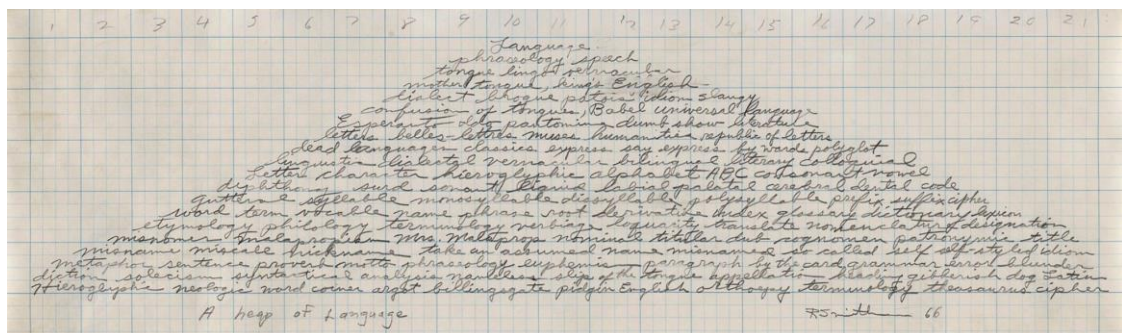 1 2 3 4 5 6 7 8 9 10 11 12 13 14 15 16 17 18 19 20 21
Language
phraseology speech
tongue lingo vernacular
mother tongue, King's English
dialect brogue patois idiom slangy
confusion of tongues, Babel universal language
Esperanto dog pantomime dumb show literature
letters belles-lettres muses humanities republic of letters
dead languages classics express say express by words polyglot
linguistic dialectal vernacular bilingual literary colloquial
letter character hieroglyphic alphabet ABC consonant vowel
diphthong surd sonant liquid labial palatal cerebral dental code
guttural syllable monosyllable dissyllable polysyllable prefix suffix cipher
word term vocable name phrase root derivative index glossary dictionary lexicon
etymology philology terminology verbiage loquacity translate nomenclature designation
misnomer malapropism Mrs. Malaprop nominal titular dub cognomen patronymic title
misname miscall nickname take an assumed name misnamed so called self styled idiom
metaphor sentence proverb motto phraseology euphemism paragraph by the card grammar error blunder
diction solecism syntactical analysis nameless slip of the tongue appellation heading gibberish dog Latin
Hieroglyphic neologic word coiner argot billingsgate pidgin English orthoepy terminology thesaurus cipher
A heap of Language
RSmithson 66